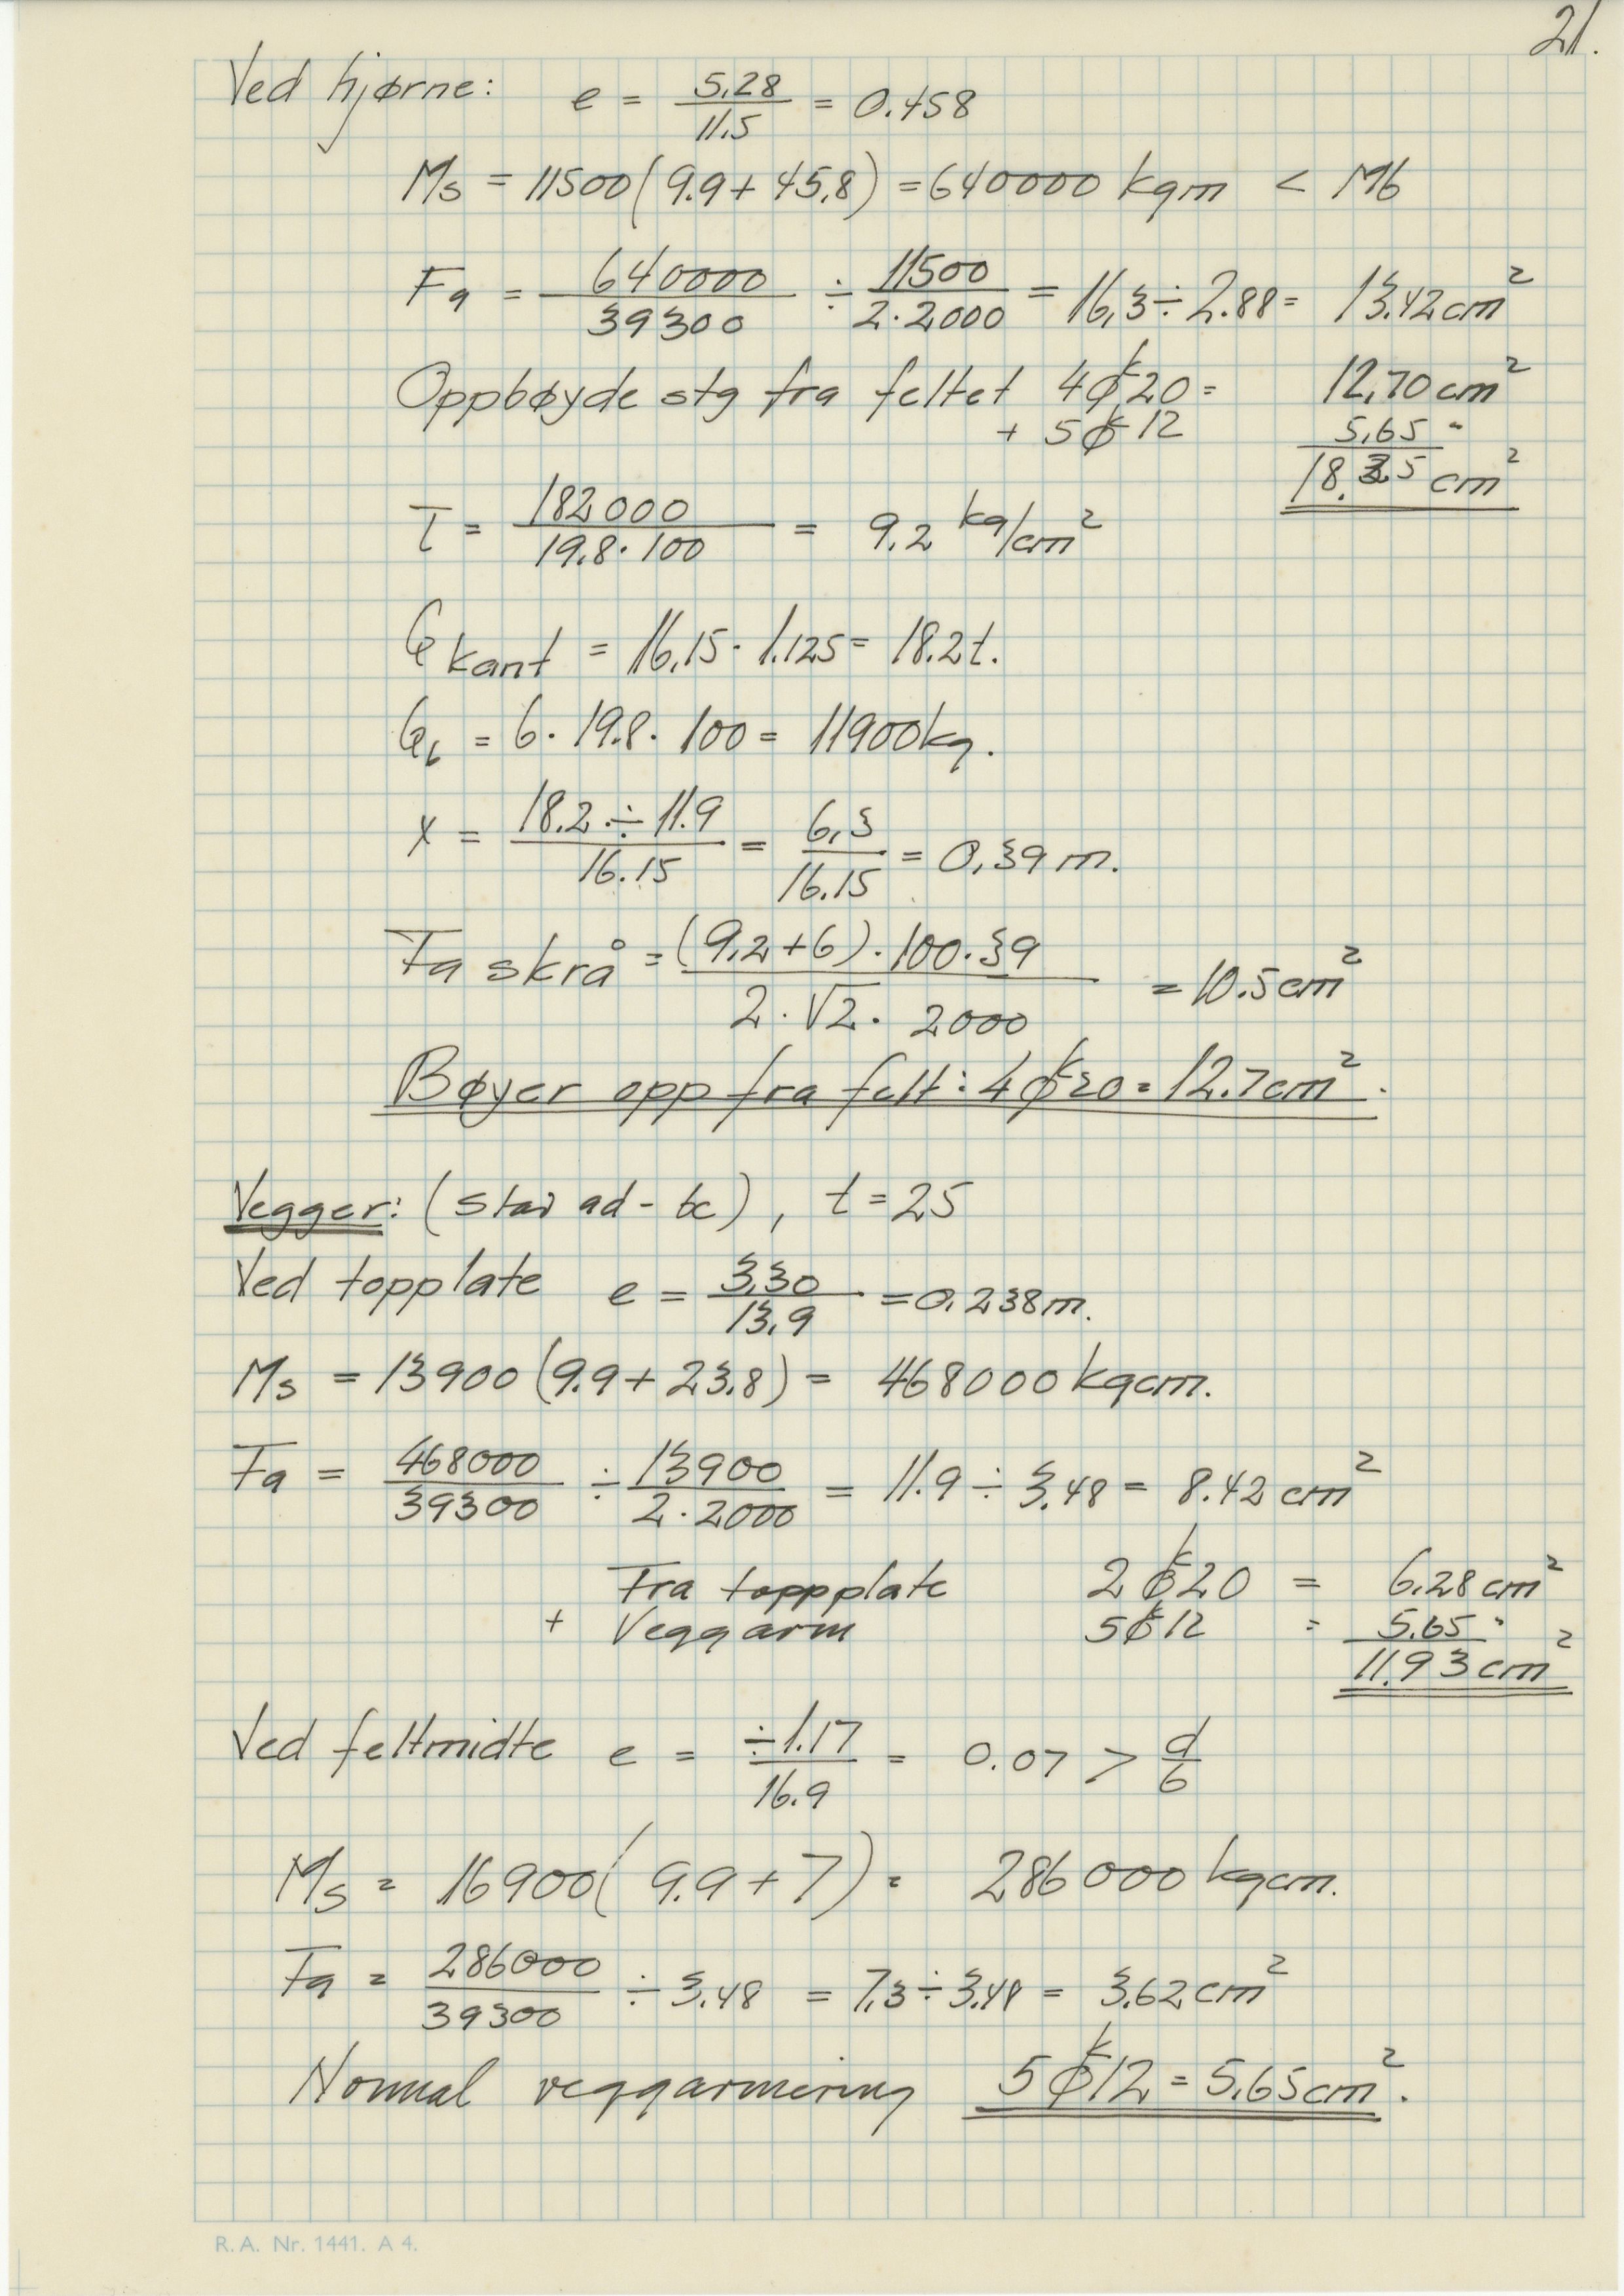 21.
Ved hjørne: e = 5,28 / 11.5 = 0.458
Ms = 11500(9.9 + 45,8) = 640000 kgm < Mb
Fa = 640000 / 39300 ÷ 11500 / 2·2000 = 16,3 ÷ 2.88 = 13.42 cm²
Oppbøyde stg fra feltet 4 ø k 20 = 12,70 cm²
+ 5 ø k 12 5,65 "
18.35 cm²
τ = 182000 / 19,8·100 = 9.2 kg/cm²
Q kant = 16,15 · 1.125 = 18.2t.
Qb = 6 · 19.8 · 100 = 11900 kg.
x = 18.2 ÷ 11.9 / 16.15 = 6,3 / 16.15 = 0,39 m.
Fa skrå = (9,2 + 6) · 100 · 39 / 2 · √2 · 2000 = 10.5 cm²
Bøyer opp fra felt: 4 ø k 20 = 12.7 cm².
Vegger: (stav ad - bc), t = 25
Ved topplate e = 3,30 / 13,9 = 0,238 m.
Ms = 13900 (9.9 + 23,8) = 468000 kgcm.
Fa = 468000 / 39300 ÷ 13900 / 2·2000 = 11.9 ÷ 3.48 = 8.42 cm²
Fra toppplate 2 ø k 20 = 6.28 cm²
+ Veggarm 5 ø k 12 = 5.65 "
11.93 cm²
Ved feltmidte e = ÷1.17 / 16.9 = 0.07 > d/6
Ms = 16900 (9.9 + 7) = 286000 kgcm.
Fa = 286000 / 39300 ÷ 3.48 = 7,3 ÷ 3.48 = 3.62 cm²
Normal veggarmering 5 ø k 12 = 5,65 cm².
R.A. Nr. 1441. A 4.